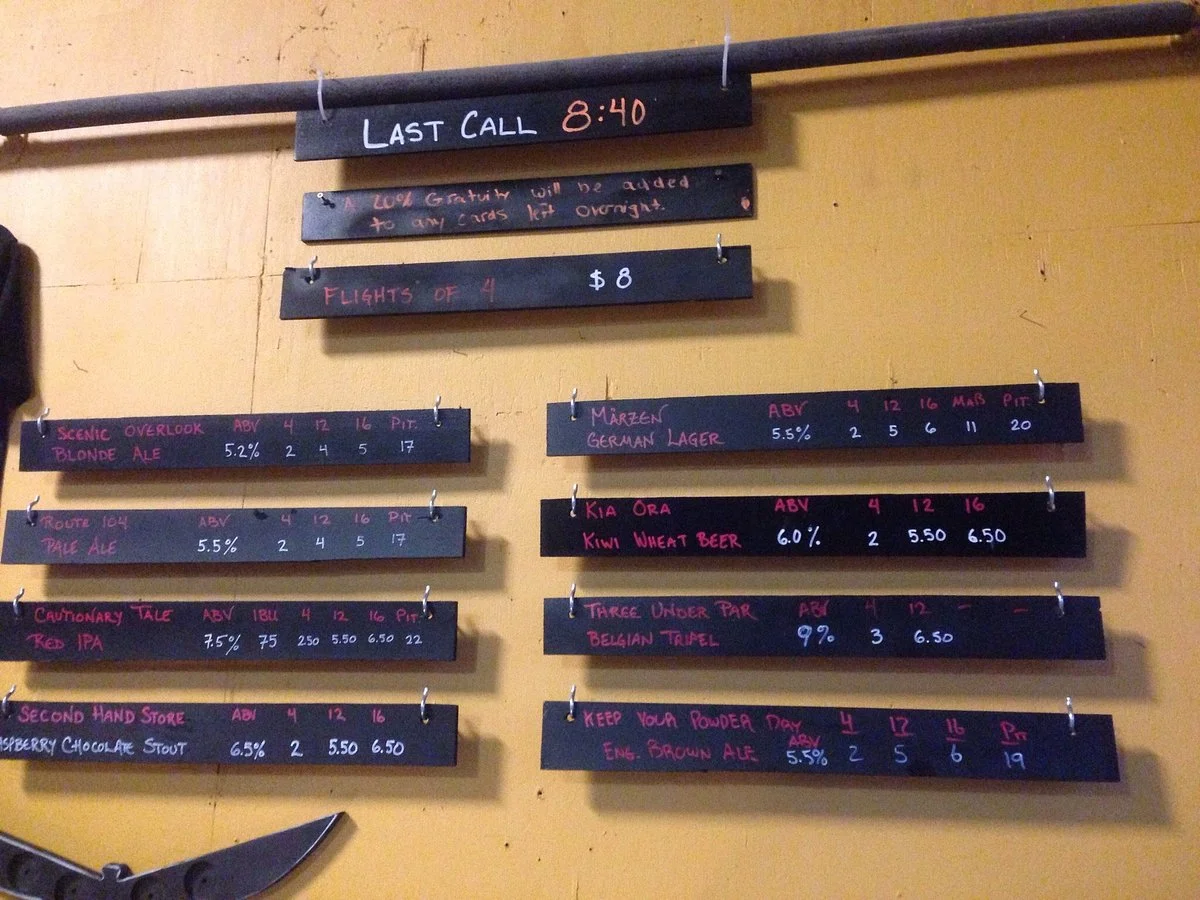 LAST CALL 8:40
A 20% Gratuity will be added
to any cards left overnight.
FLIGHTS OF 4 $8
SCENIC OVERLOOK ABV 4 12 16 PIT.
BLONDE ALE 5.2% 2 4 5 17
ROUTE 104 ABV 4 12 16 PIT
PALE ALE 5.5% 2 4 5 17
CAUTIONARY TALE ABV IBU 4 12 16 PIT.
RED IPA 7.5% 75 250 5.50 6.50 22
SECOND HAND STORE ABV 4 12 16
ASPBERRY CHOCOLATE STOUT 6.5% 2 5.50 6.50
MÄRZEN ABV 4 12 16 MAß PIT.
GERMAN LAGER 5.5% 2 5 6 11 20
KIA ORA ABV 4 12 16
KIWI WHEAT BEER 6.0% 2 5.50 6.50
THREE UNDER PAR ABV 4 12 - -
BELGIAN TRIPEL 9% 3 6.50
KEEP YOUR POWDER DRY ABV 4 12 16 PIT
ENG. BROWN ALE 5.5% 2 5 6 19